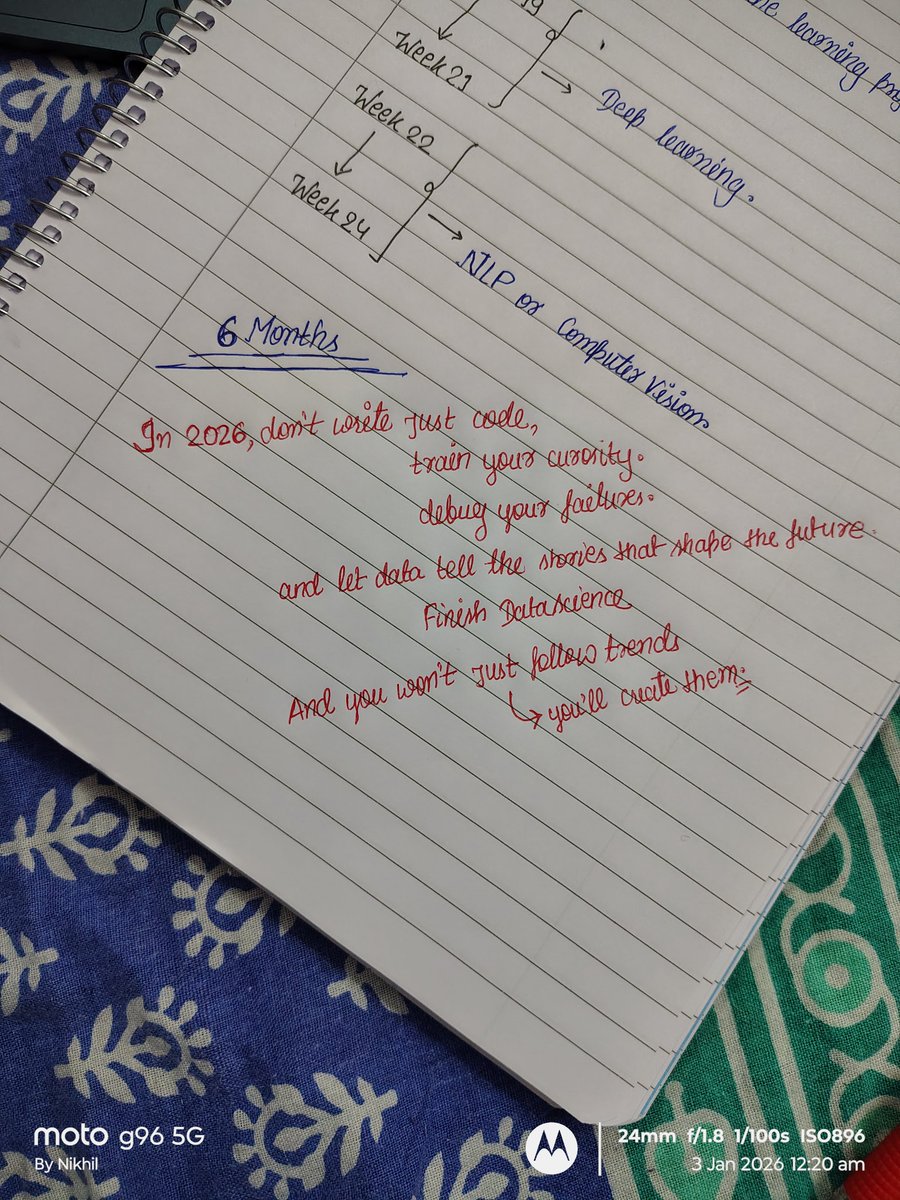 19
Week 21
Deep learning.
Week 22
Week 24
NLP or Computer Vision
6 Months
In 2026, don't write just code,
train your curosity.
debug your failures.
and let data tell the stories that shape the future.
Finish Datascience
And you won't just follow trends
you'll create them.
learning
moto g96 5G
By Nikhil
24mm f/1.8 1/100s ISO896
3 Jan 2026 12:20 am